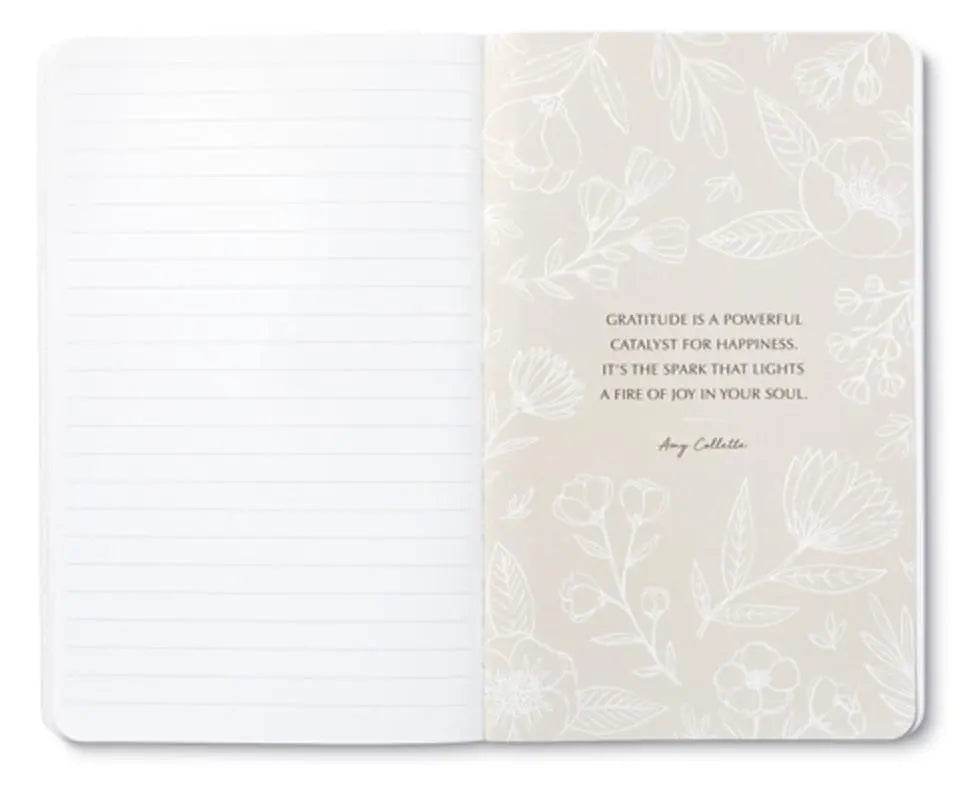 GRATITUDE IS A POWERFUL
CATALYST FOR HAPPINESS.
IT'S THE SPARK THAT LIGHTS
A FIRE OF JOY IN YOUR SOUL.
Amy Collette